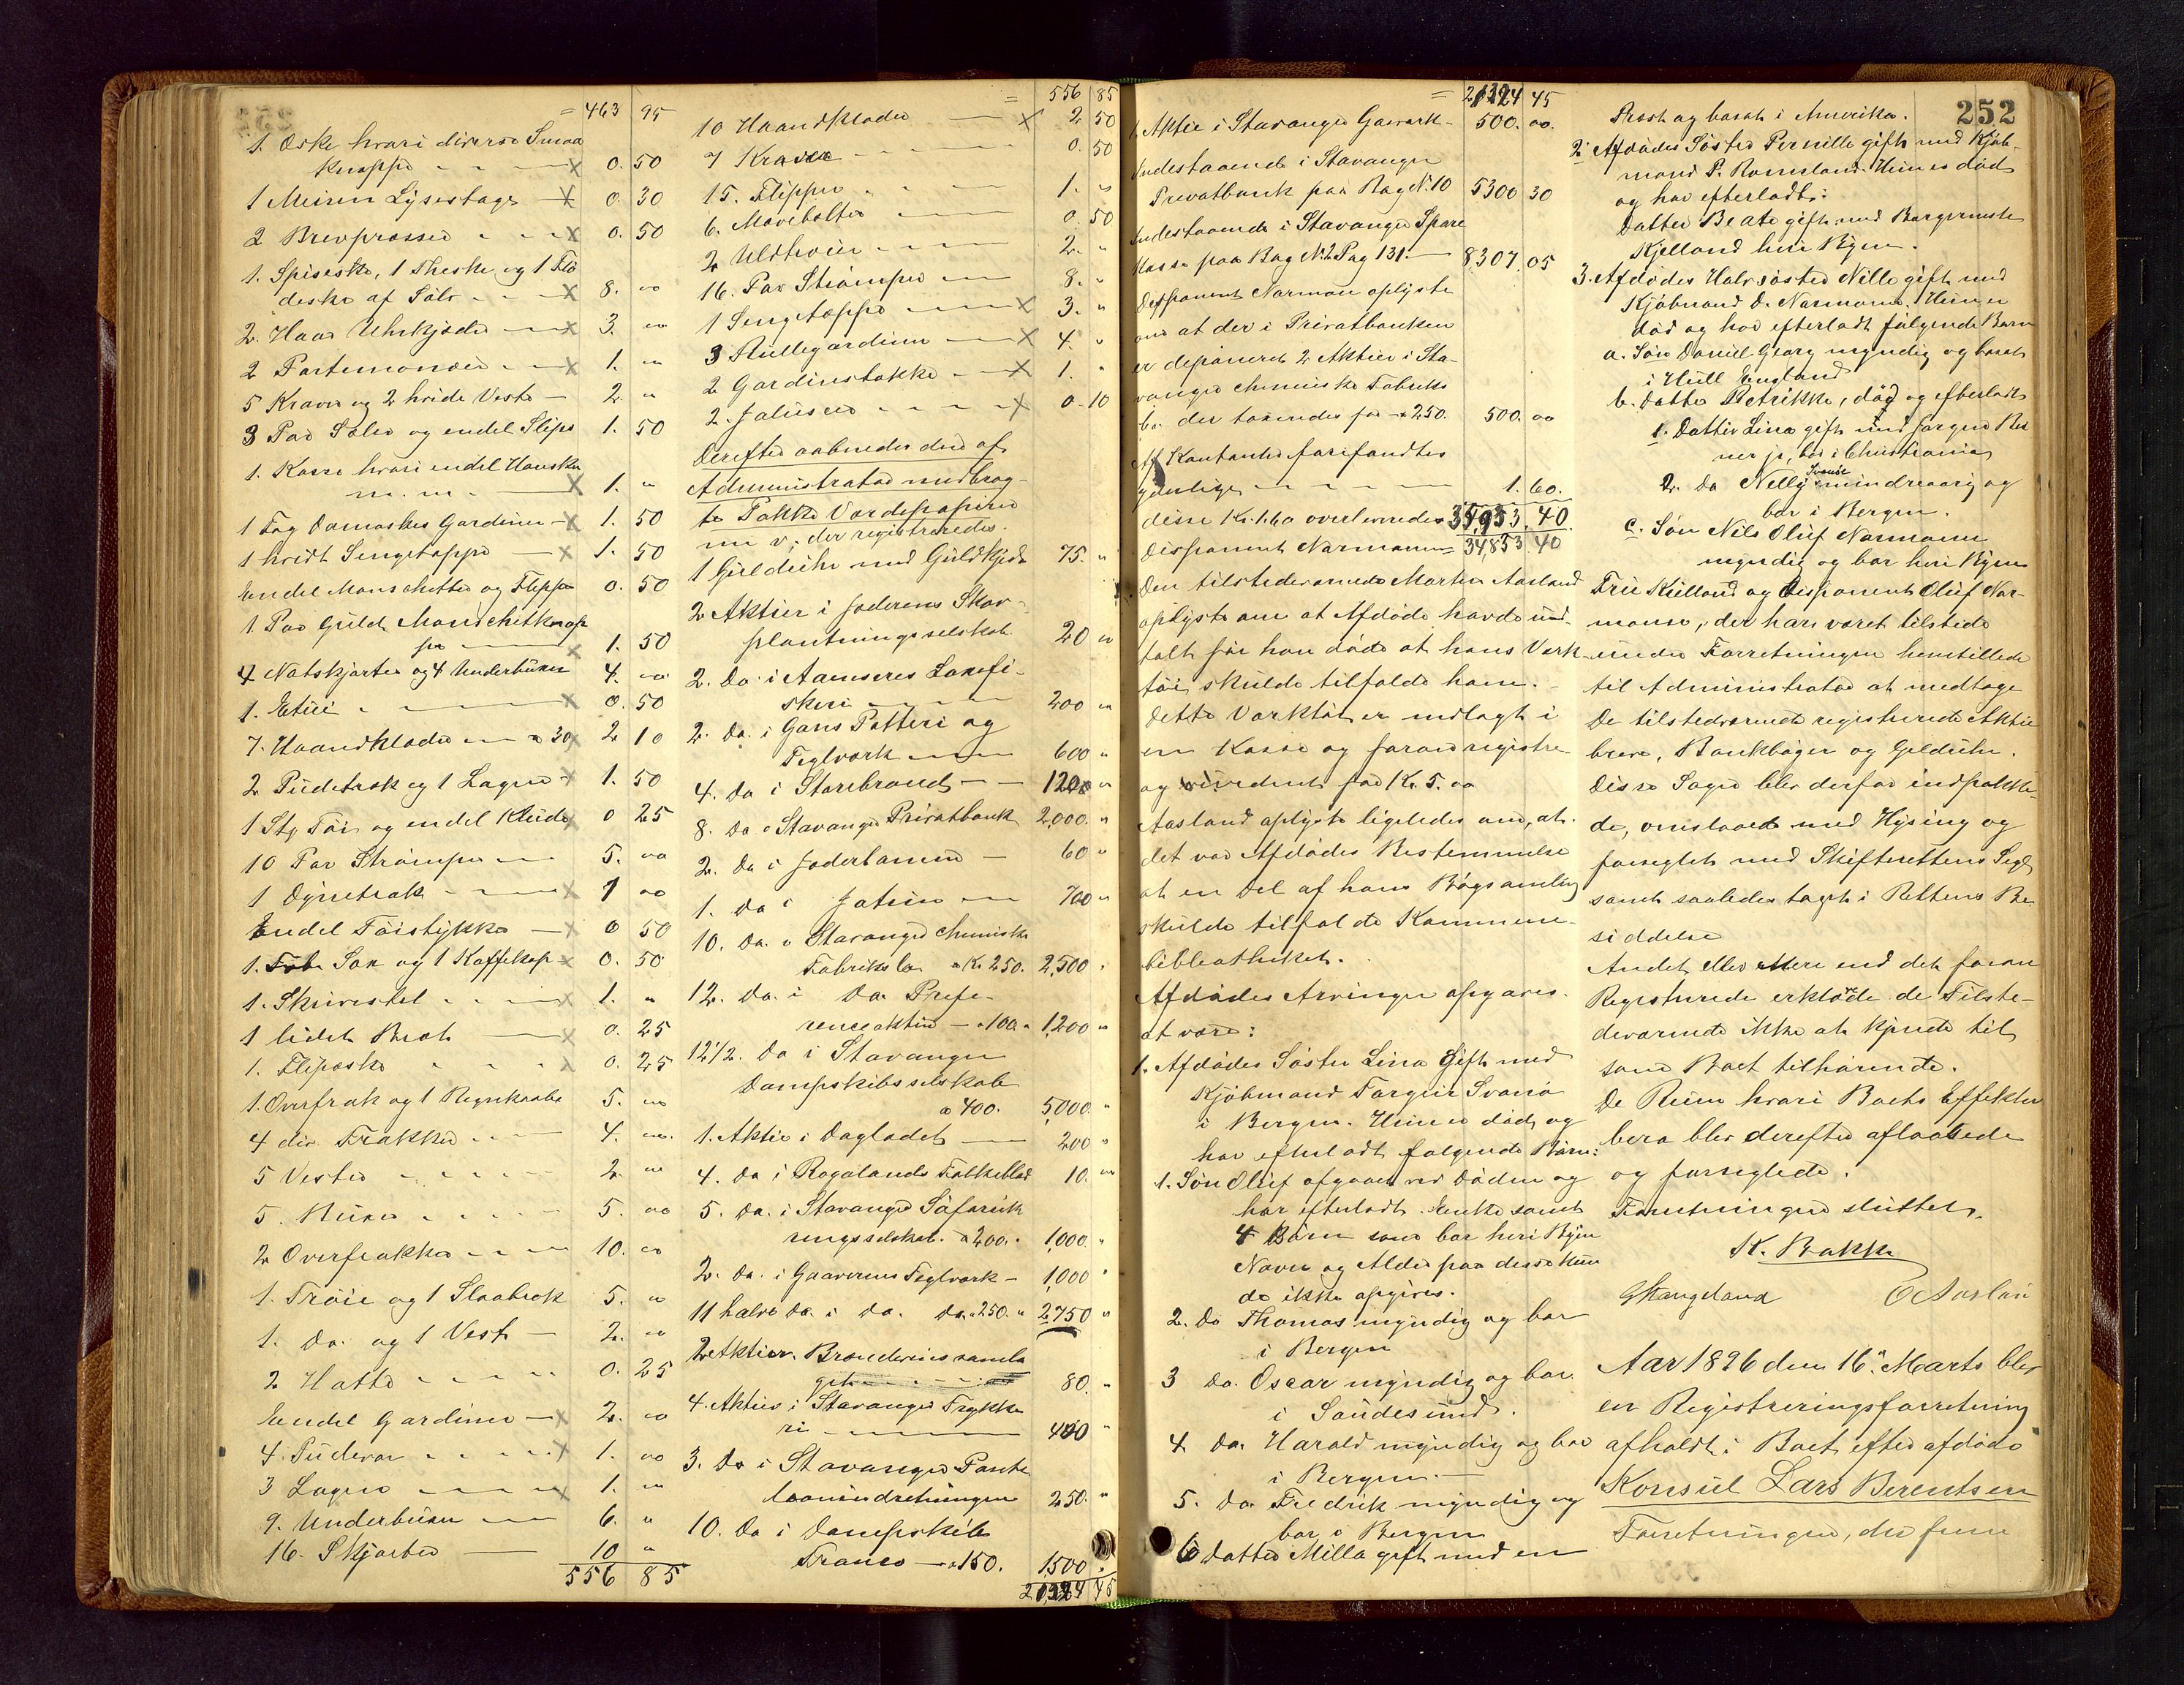 = 463 95
1. Æske hvori diverse Smaa
knapper - - x 0. 50
1 Messen Lysestage x 0. 30
2 Brevpresser - - x 0. 50
1. Spiseske, 1 Theske og 1 Flø
deske af Sølv - - x 8. oo
2. Haar Uhrkjæder x 3. oo
2 Portemonæer - x 1. "
5 Kraver og 2 hvide Veste - 2. "
3 Par Seler og endel Slips 1. 50
1. Kasse hvori endel Hansker
m. m. - x 1. "
1 Fag Damaskes Gardiner - x 1. 50
1 hvidt Sengetæppe - x 1. 50
Endel Manschetter og Flipper 0. 50
1. Par Guld Manschetknap
per x 1. 50
4 Natskjorter og 4 Underbuxer 4. oo
1. Etui - x 0. 50
7. Haandklæder - a 30 x 2 10
2 Pudetræk og 1 Lagen x 1. 50
1 Stk Tøi og endel Klude x 0 25
10 Par Strømper - 5. oo
1 Dynetræk - x 1 oo
Endel Tøistykker - x 0 50
1. Sax og 1 Kaffekop x 0. 50
1. Skrivestel - x 1. "
1 lidet Bræt - x 0. 25
1. Flipæske x 0. 25
1. Overfrak og 1 Regnkaabe 5. oo
4 div. Frakker - - 4. oo
5 Vester - - - 2. oo
5. Buxer - - - 5. oo
2 Overfrakker - - 10. oo
1. Trøie og 1 Slaabrok 5. oo
1. Do. og 1 Vest - 2. oo
2 Hatte - - - 0. 25
Endel Gardiner - x 2. oo
4. Pudevar - - x 1. oo
3 Lagen - - x 1. "
9. Underbuxer - 6. "
16. Skjorter - 10 "
556 85
= 556 85
10 Haandklæder - x 2 50
7 Kraver - - 0. 50
15. Flipper - - 1. "
6. - 0. 50
2 Uldtrøier - - 2. "
16. Par Strømper - 8. "
1 Sengetæppe - x 3. "
3 Rullegardiner - x 4. "
2 Gardinstokke - x 1. "
2. Jalusier - - x 0. 10
Derefter aabnedes den af
Administrator medbrag-
te Pakke Værdipapirer
m. v. der registreredes.
1 Gulduhr med Guldkjæde 75. "
2 Aktier i Jæderens Skov-
plantningsselskab 20 oo
2. Do. i Laxefi-
skeri - - 200 oo
2. Do. i Gans Potteri og
Teglværk - 600 "
4. Do i Storebrand - - 1200 "
8. Do i Stavanger Privatbank 2,000. "
2. Do i Jæderbanen - 60 "
1. Do i - 700 "
10. Do. i Stavanger chemiske
Fabriks a Kr. 250. 2,500 "
12. Do. i Do. Præfe-
renceaktier - a 100. 1,200 "
12 1/2. Do i Stavanger
Dampskibsselskab
a 400. 5,000. "
1. Aktie i Dagbladet - 200 "
4. Do i Rogalands Folkeblad 10. oo
5. Do. i Stavanger Søforsik
ringsselskab. a 200. 1,000. "
2. Do. i Teglværk - 1,000 "
11 halve Do. i Do. Do. a 250. 2,750 "
2 Aktier. Brænderiessamla
get - 80. "
4. Aktier i Stavanger Trykke
ri - 400 "
3. Do i Stavanger Pante
laaneindretningen 250. "
10. Do i Dampskib
Franco - a 150. 1500 "
= 45
1. Aktie i Stavanger Gasværk - 500. oo.
Indestaaende i Stavanger
Privatbank paa Bog No. 10 5300 30
Indestaaende i Stavanger Spare
kasse paa Bog No. 2 Pag 131. - 8,307. 05
Disponent Normann oplyste
om at der i Privatbanken
er deponeret 2 Aktier i Sta-
vanger chemiske Fabriks
Co. der taxeredes for - a 250. 500. oo
Af Kontanter forefandtes
ydmlige - - - 1. 60.
disse Kr. 1.60 overleveredes 34,953. 40.
Disponent Normann = 34,853 40
Den tilstedeværende Morten Aasland
oplyste om at Afdøde havde ud-
talt før han døde at hans Værk-
tøi skulde tilfalde ham. -
Dette Værktøi er indlagt i
en Kasse og foran registre-
og vurderet for Kr. 5. oo
Aasland oplyste ligeledes om, at
det var Afdødes Bestemmelse
at en Del af hans Bogsamling
skulde tilfalde Kommune-
bibliotheket.
Afdødes Arvinger opgaves.
at være:
1. Afdødes Søster Lina Gift med
Kjøbmand Torgeir Svanø
i Bergen. Hun er død og
har efterladt følgende Børn:
1. Søn Oluf afgaaet ved Døden og
har efterladt Enke samt
4 Børn som bor her i Byen
Navn og Alder paa disse kun
de ikke opgives.
2. Do Thomas myndig og bor
i Bergen
3 Do. Oscar myndig og bor
i Sandesund.
4. Do. Harald myndig og bor
i Bergen. -
5. Do Fredrik myndig og
bor i Bergen
6 Datter Milla gift med en
252
Præst og bosat i Amerika.
2. Afdødes Søster Pernille gift med Kjøb-
mand P. Romsland. Hun er død
og har efterladt:
Datter Beate gift med Borgermester
Kjelland her i Byen.
3. Afdødes Halvsøster Nille gift med
Kjøbmand D. Normann. Hun er
død og har efterladt følgende Børn
a. Søn Daniel Georg myndig og bosat
i Hull England
b. Datter Petrikke, død og efterladt
1. Datter Lina gift med Jørgen Bre
ner jr, bor i Christiania
2. Do Nelly Svanøe mindreaarig og
bor i Bergen.
c. Søn Nils Oluf Normann
myndig og bor her i Byen
Frue Kielland og Disponent Oluf Nor-
mann, der har været tilstede
under Forretningen henstillede
til Administrator at medtage
De tilstedeværende registrerede Aktie
breve, Bankbøger og Gulduhr.
Disse Sager blev derfor indpakke-
de, omslaaet med Hysing og
forseglet med Skifterettens Segl
samt saaledes tagen i Rettens Be-
siddelse
Andet eller Mere end det foran
Registrerede erklærede de Tilste-
deværende ikke at kjende til
som Boet tilhørende.
De Rum hvori Boets Effekter
bero blev derefter aflaasede
og forseglede.
Forretningen sluttet.
K. Bakke
G Haugeland O Aasland
Aar 1896 den 16. Marts blev
en Registreringsforretning
afholdt i Boet efter afdøde
Konsul Lars Berentsen
Forretningen, der fore